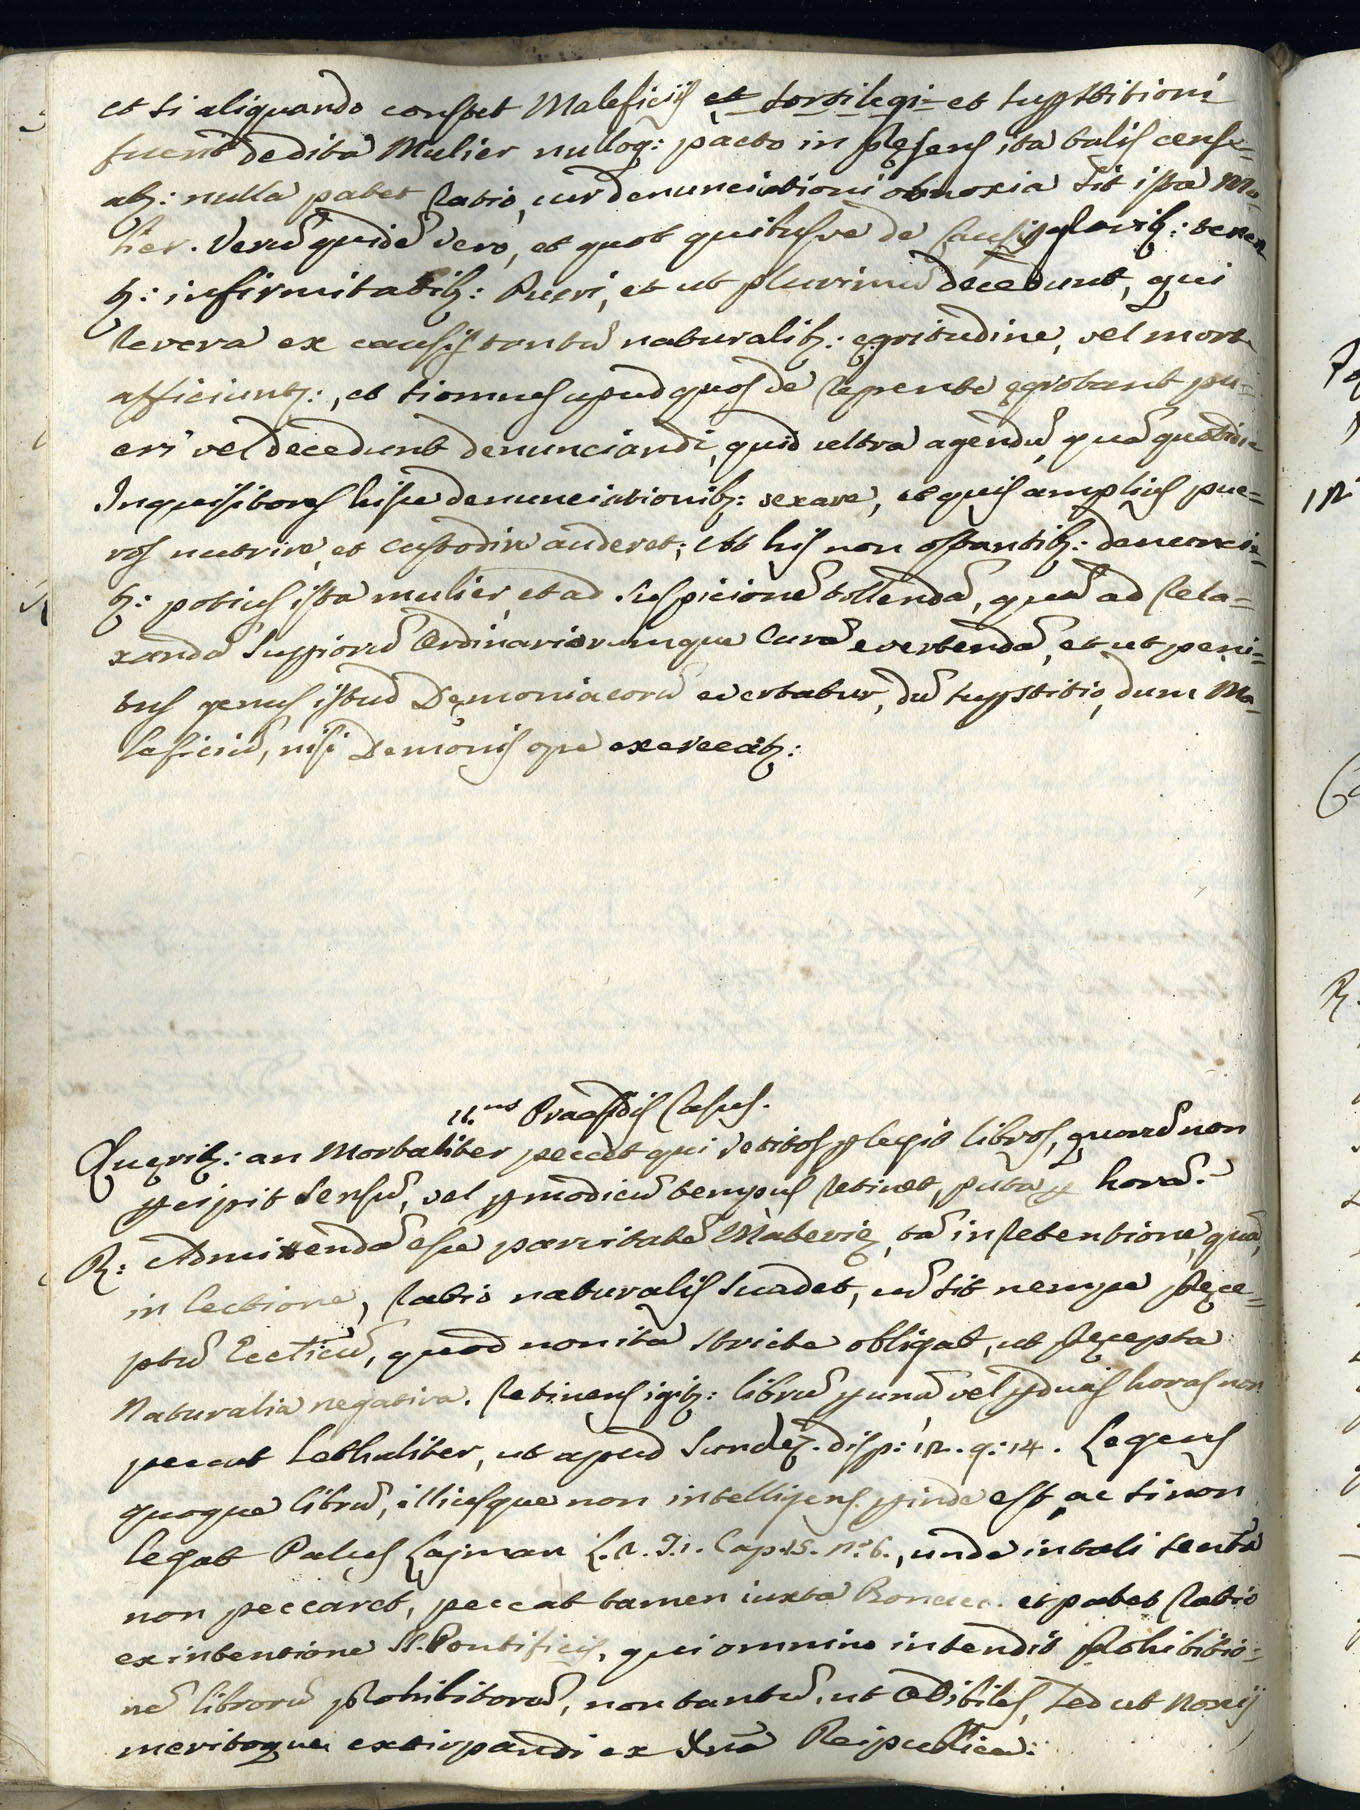 et si aliquando constet Maleficijs et sortilegi= et supstitioni
fuerit dedita Mulier nulloq: pacto in pręsens ita talis cense=
atq: nulla patet ratio, cur denunciationi obnoxia sit ista Mu
lier. Verũ quidẽ vero, et quot quibusve de causis gravibq:
bq: infirmitatibq: Pueri, et ut plurimũ decedunt, qui
revera ex causis tantũ naturalibq: ęgritudine, vel morte
afficiuntq:, et si omnes apud quos de repente ęgrotant pu=
eri vel decedunt denunciandi, quid ultra agendũ, quã quotidie
Inquisitores hisce denunciationibq: vexare, et quis amplius pue=
ros nutrire, et custodire auderet; Att his non obstantibq: denuncie=
tq: potius ista mulier, et ad suspicionẽ tollendã, quã ad rela=
xandã Suppiorũ Ordinariorumque Curã evertendã, et ut peni=
tus genus istud Dęmoniacorũ evertatur, dũ supstitio, dum Ma=
leficiũ, nisi Demonis ope exerceatq:
11.mus Praesidis Casus.
Quęritq: an Mortaliter peccet qui vetitos plegit libros, quorũ non
pcipit sensũ, vel p modicũ tempus retinet, puta p horã.
R: Admittendã esse parvitatẽ Materię, tã in retentione, quã,
in lectione, ratio naturalis suadet, cũ sit nempe pręce=
ptũ Eccticũ, quod non ita stricte obligat, ut pręcepta
Naturalia negativa. Retinens igitq: librũ p unã vel p duas horas non
peccat lethaliter, ut apud Sundez. disp: 12. q: 14. Legens
quoque librũ, illiusque non intelligens pinde est, ac si non
legat Palus Lajman L. 2. T. 1. Cap. 15. n.o 6., unde in tali sentã
non peccaret, peccat tamen iuxta et patet ratio
ex intentione S. Pontificis, qui omnino intendit prohibitio=
nẽ librorũ prohibitorũ, non tantũ, ut odibiles, sed ut noxij
meritoque extirpandi ex Xnã Reipublica: